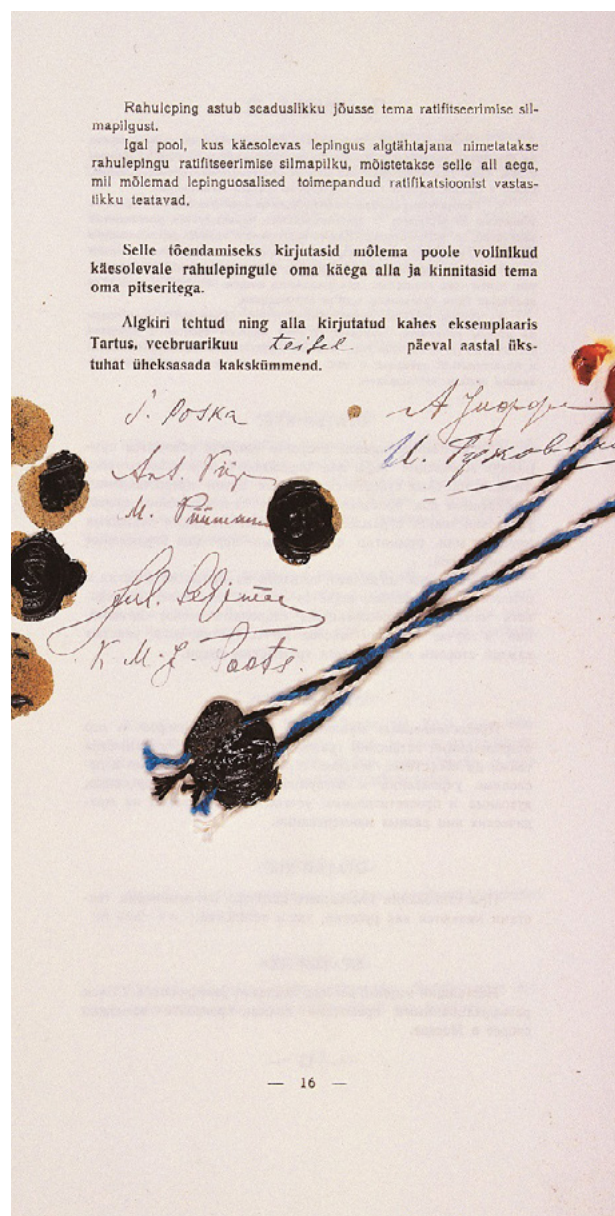 Rahuleping astub seaduslikku jõusse tema ratifitseerimise sil-
mapilgust.
Igal pool, kus käesolevas lepingus algtähtajana nimetatakse
rahulepingu ratifitseerimise silmapilku, mõistetakse selle all aega,
mil mõlemad lepinguosalised toimepandud ratifikatsioonist vastas-
tikku teatavad.
Selle tõendamiseks kirjutasid mõlema poole volinikud
käesolevale rahulepingule oma käega alla ja kinnitasid tema
oma pitseritega.
Algkiri tehtud ning alla kirjutatud kahes eksemplaaris
Tartus, veebruarikuu teisel päeval aastal üks-
tuhat üheksasada kakskümmend.
J. Poska
А Иоффе
И. Гуковский
Ant. Piip
M. Püümann
Jul. Seljamaa
— 16 —